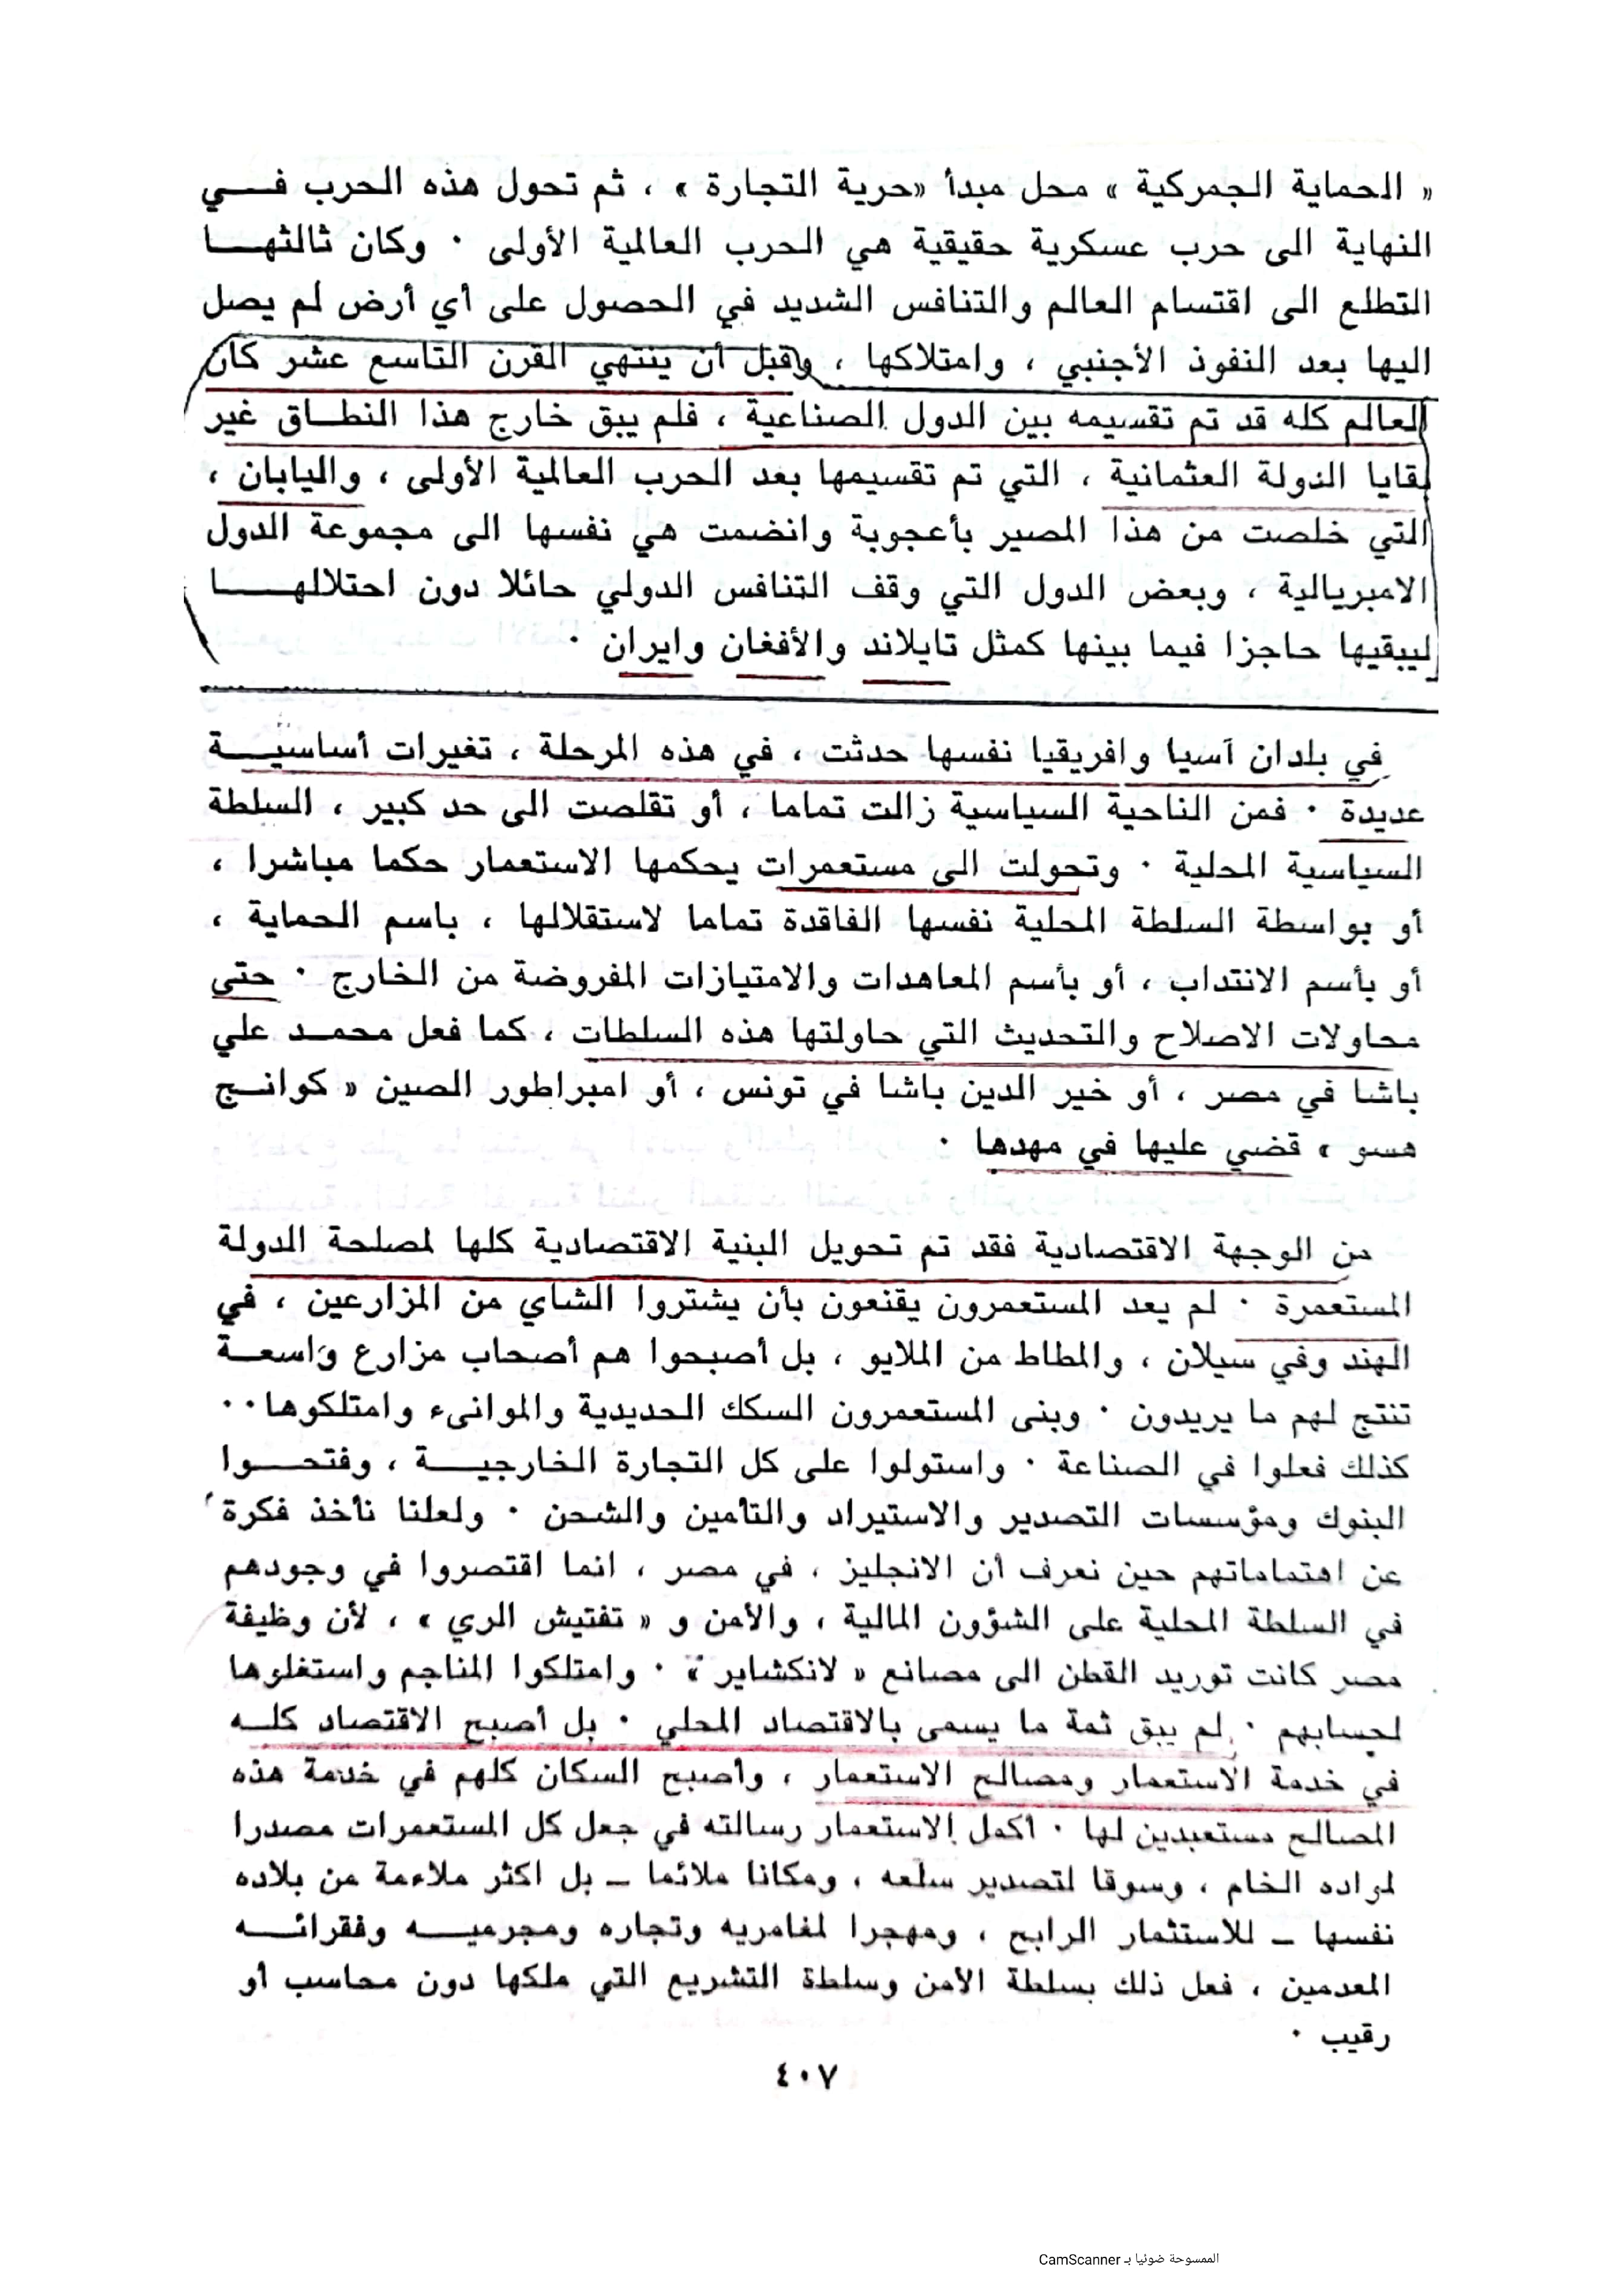 « الحماية الجمركية » محل مبدأ «حرية التجارة » ، ثم تحول هذه الحرب فــي
النهاية الى حرب عسكرية حقيقية هي الحرب العالمية الأولى ٠ وكان ثالثهــا
التطلع الى اقتسام العالم والتنافس الشديد في الحصول على أي أرض لم يصل
اليها بعد النفوذ الأجنبي ، وامتلاكها ، وقبل أن ينتهي القرن التاسع عشر كان
العالم كله قد تم تقسيمه بين الدول الصناعية ، فلم يبق خارج هذا النطــاق غير
بقايا الدولة العثمانية ، التي تم تقسيمها بعد الحرب العالمية الأولى ، واليابان ،
التي خلصت من هذا المصير بأعجوبة وانضمت هي نفسها الى مجموعة الدول
الامبريالية ، وبعض الدول التي وقف التنافس الدولي حائلا دون احتلالهــا
ليبقيها حاجزا فيما بينها كمثل تايلاند والأفغان وايران ٠
في بلدان آسيا وافريقيا نفسها حدثت ، في هذه المرحلة ، تغيرات أساسيــة
عديدة ٠ فمن الناحية السياسية زالت تماما ، أو تقلصت الى حد كبير ، السلطة
السياسية المحلية ٠ وتحولت الى مستعمرات يحكمها الاستعمار حكما مباشرا ،
أو بواسطة السلطة المحلية نفسها الفاقدة تماما لاستقلالها ، باسم الحماية ،
أو بأسم الانتداب ، أو بأسم المعاهدات والامتيازات المفروضة من الخارج ٠ حتى
محاولات الاصلاح والتحديث التي حاولتها هذه السلطات ، كما فعل محمــد علي
باشا في مصر ، أو خير الدين باشا في تونس ، أو امبراطور الصين « كوانــج
هسو » قضي عليها في مهدها ٠
من الوجهة الاقتصادية فقد تم تحويل البنية الاقتصادية كلها لمصلحة الدولة
المستعمرة ٠ لم يعد المستعمرون يقنعون بأن يشتروا الشاي من المزارعين ، في
الهند وفي سيلان ، والمطاط من الملايو ، بل أصبحوا هم أصحاب مزارع واسعــة
تنتج لهم ما يريدون ٠ وبنى المستعمرون السكك الحديدية والموانىء وامتلكوها٠٠
كذلك فعلوا في الصناعة ٠ واستولوا على كل التجارة الخارجيــة ، وفتحــوا
البنوك ومؤسسات التصدير والاستيراد والتأمين والشحن ٠ ولعلنا نأخذ فكرة
عن اهتماماتهم حين نعرف أن الانجليز ، في مصر ، انما اقتصروا في وجودهم
في السلطة المحلية على الشؤون المالية ، والأمن و « تفتيش الري » ، لأن وظيفة
مصر كانت توريد القطن الى مصانع « لانكشاير » ٠ وامتلكوا المناجم واستغلوها
لحسابهم ٠ لم يبق ثمة ما يسمى بالاقتصاد المحلي ٠ بل أصبح الاقتصاد كلــه
في خدمة الاستعمار ومصالح الاستعمار ، وأصبح السكان كلهم في خدمة هذه
المصالح مستعبدين لها ٠ أكمل الاستعمار رسالته في جعل كل المستعمرات مصدرا
لمواده الخام ، وسوقا لتصدير سلعه ، ومكانا ملائما ــ بل اكثر ملاءمة من بلاده
نفسها ــ للاستثمار الرابح ، ومهجرا لمغامريه وتجاره ومجرميــه وفقرائــه
المعدمين ، فعل ذلك بسلطة الأمن وسلطة التشريع التي ملكها دون محاسب أو
رقيب ٠
٤٠٧
الممسوحة ضوئيا بـ CamScanner